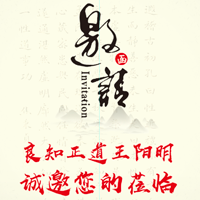 邀請
函
Invitation
良知正道王阳明
诚邀您的莅临